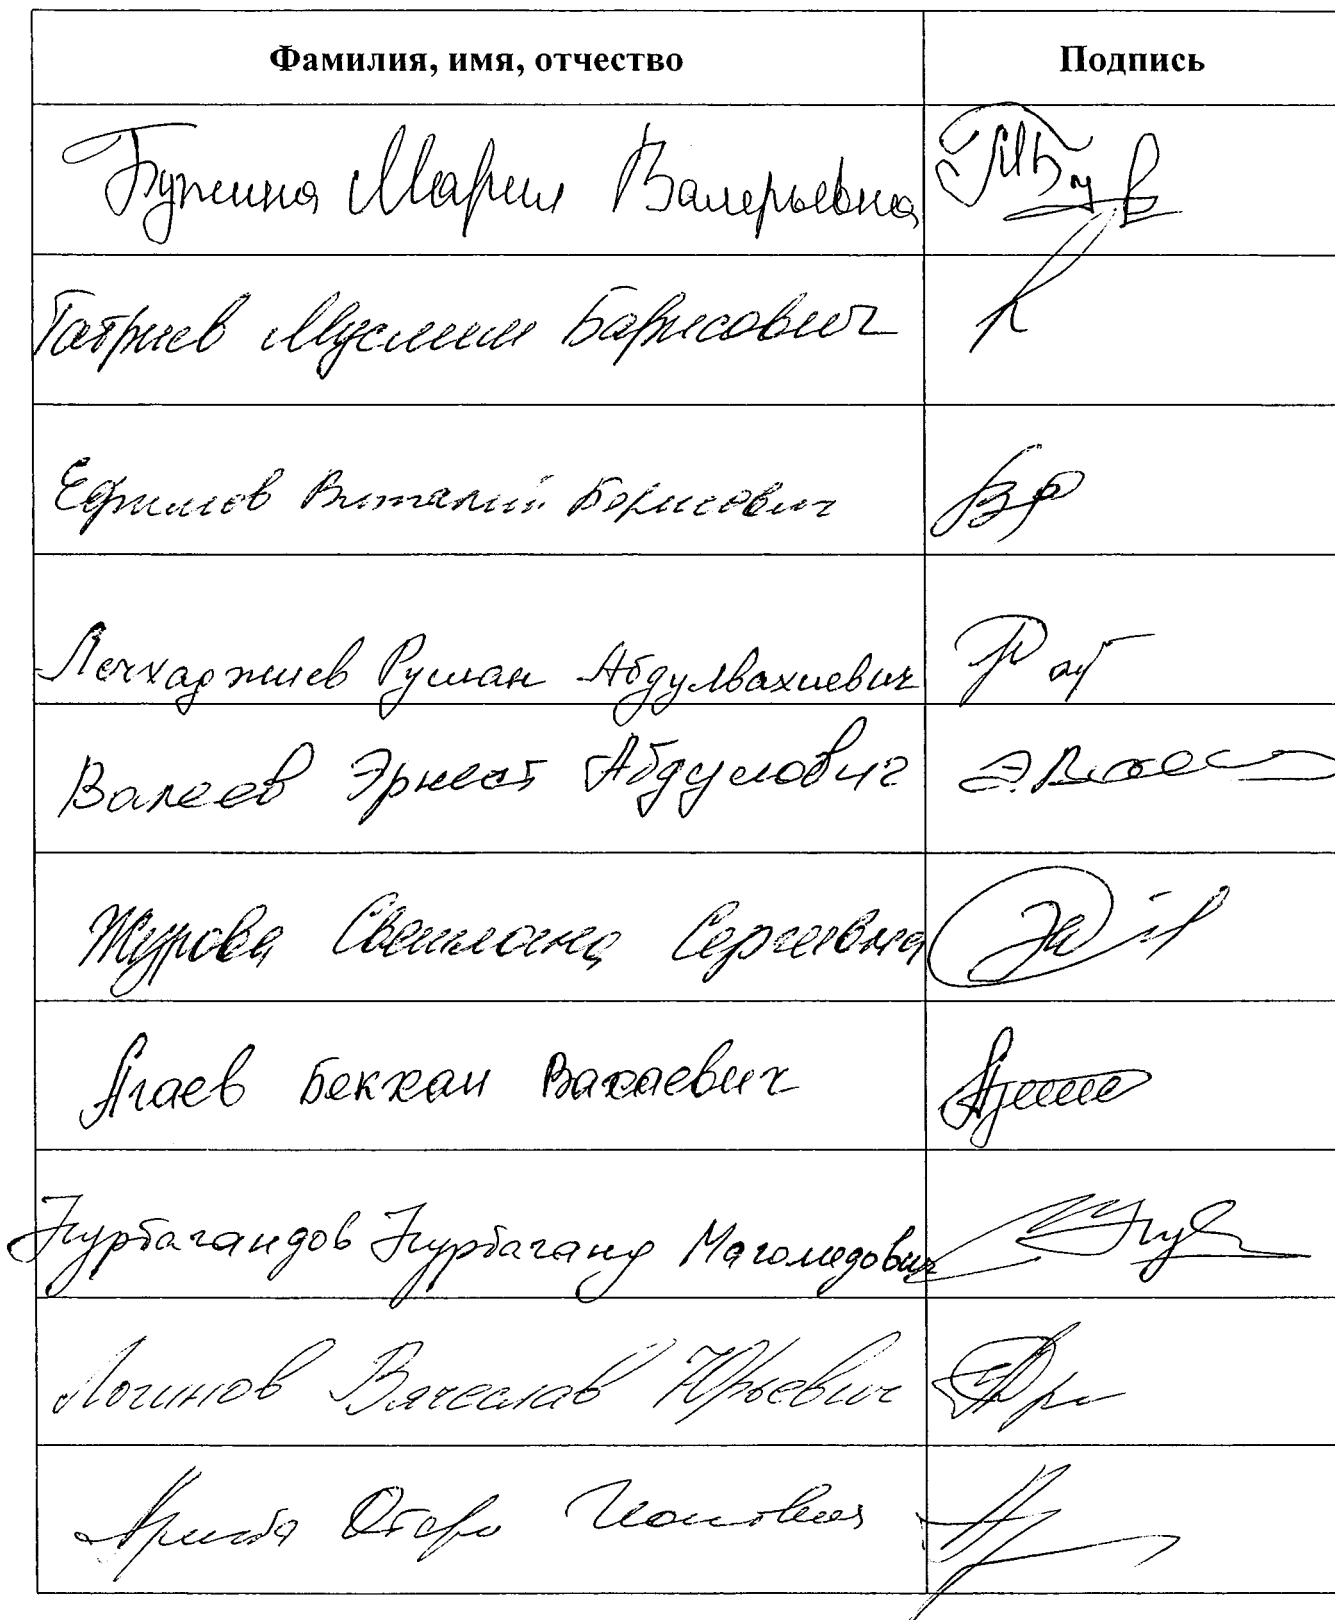 Фамилия, имя, отчество Подпись
Бутина Мария Валерьевна
Татриев Муслим Барисович
Ефимов Виталий Борисович
Лечхаджиев Руслан Абдулвахиевич
Валеев Эрнест Абдулович Э.Вале
Журова Светлана Сергеевна
Агаев Бекхан Вахаевич
Нурбагандов Нурбаганд Магомедович
Логинов Вячеслав Юрьевич
Ионовна